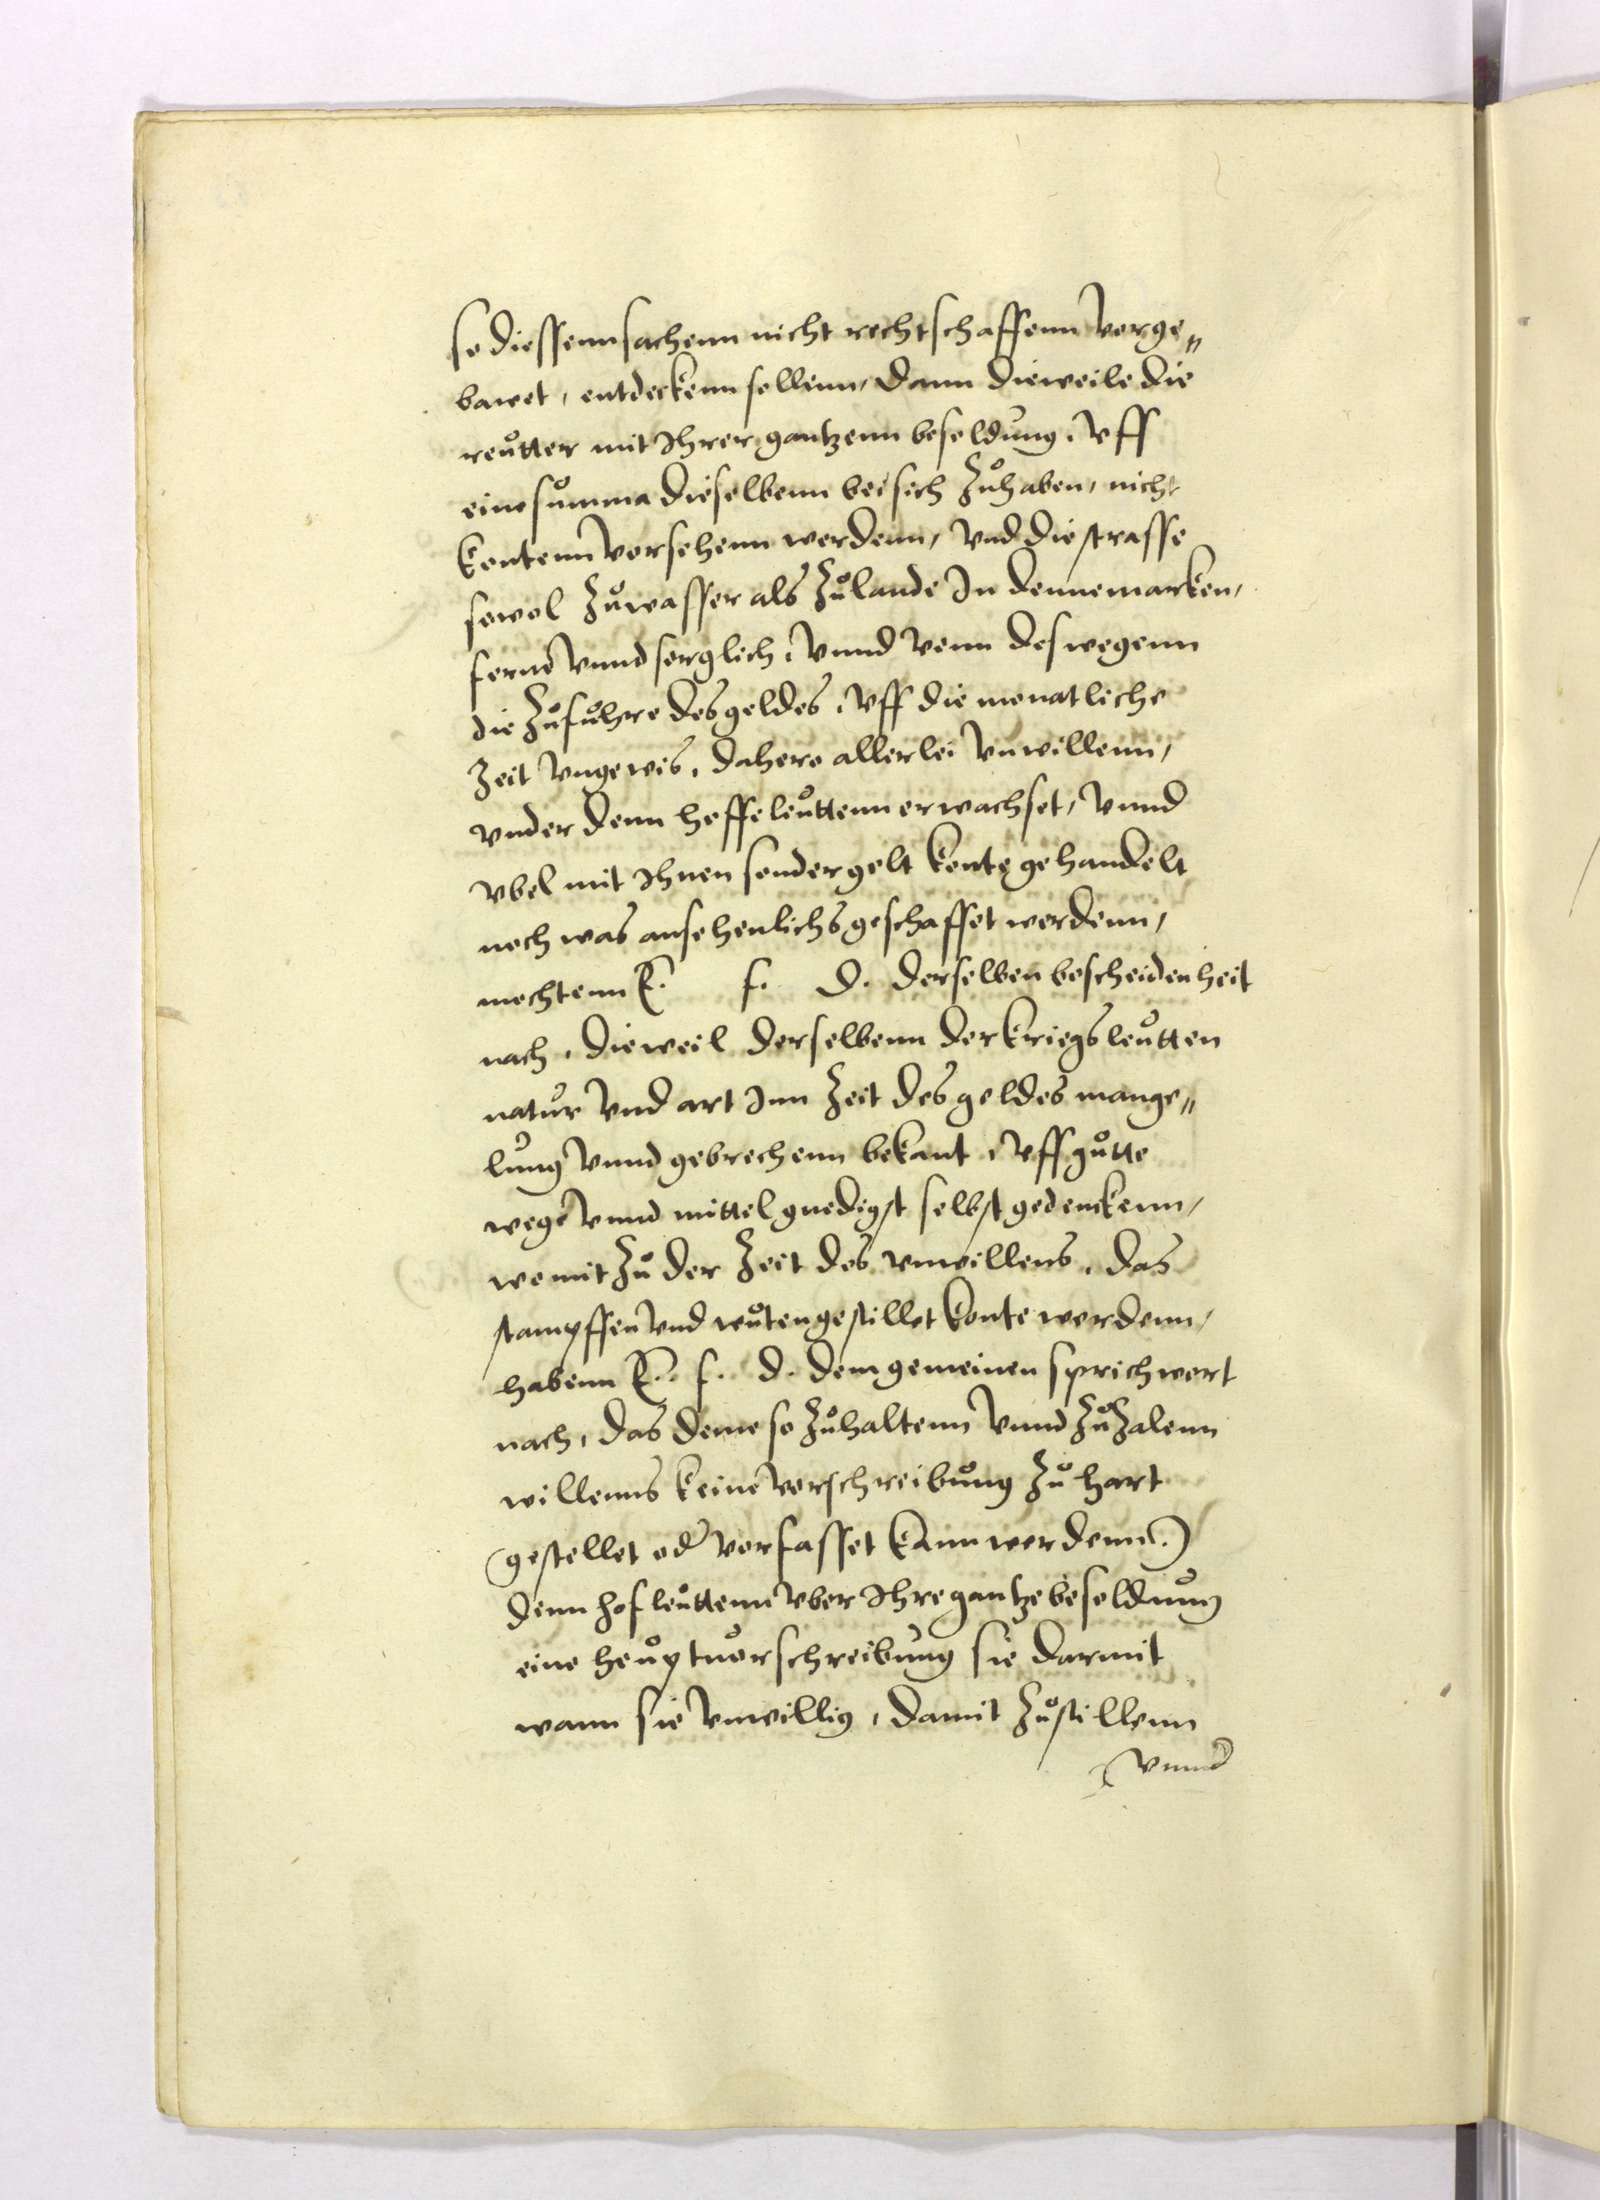 so diessenn sachenn nicht rechtschaffenn vorge„
bawet, entdeckenn sollenn, dann dieweile die
reůtter mit Ihrer gantzenn besoldůng, vff
eine sůmma dieselbenn bei sich zůhaben, nicht
kontenn vorsehenn werdenn, vnd die strasse
sowol zůwasser als zůlande In dennemarcken,
ferne vnnd sorglich, vnnd venn deswegenn
die zůfůhre des geldes, vff die monatliche
zeit vngewis, dahero allerlei vnwillenn,
vnder denn hoffeleůttenn erwachset, vnnd
vbel mit Ihnen sonder gelt konte gehandelt
noch was ansehenlichs geschaffet werdenn,
mochtenn E. f. D. derselben bescheidenheit
nach, dieweil derselbenn der kriegsleůtten
natůr vnd art Inn zeit des geldes mange„
lůng vnnd gebrechenn bekant, vff gůtte
wege vnnd mittel gnedigst selbst gedenckenn,
womit zů der zeit des vnwillens, das
stampffen vnd wůten gestillet konte werdenn,
habenn E. f. D. dem gemeinen sprichwort
nach, das deme so zůhaltenn vnnd zůzalenn
willenns keine vorschreibůng zů hart
gestellet oder vorfasset kann werdenn)
denn hofleůttenn vber Ihre gantze besoldůng
eine heůptuorschreibůng sie darmit
wann sie vnwillig, damit zůstillenn
vnnd